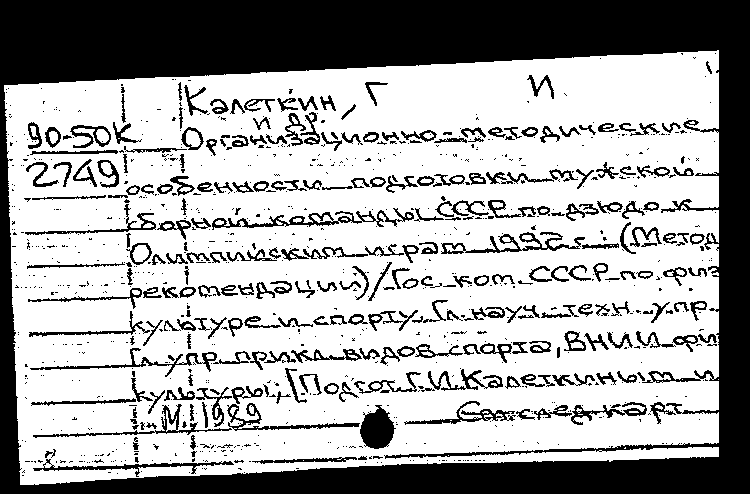 Калеткин, Г И
и др.
90-50К Организационно-методические
2749 особенности подготовки мужской
сборной команды СССР по дзюдо к
Олимпийским играм 1992 г.: (Метод
рекомендации)/Гос. ком. СССР по физ
культуре и спорту, Гл. науч.-техн. упр.
Гл. упр. прикл. видов спорта, ВНИИ физ
культуры; [Подгот. Г.И. Калеткиным и
М. 1989 См. след. карт
8